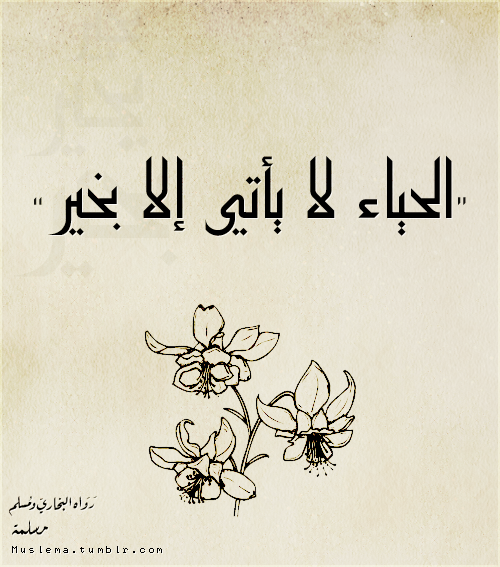 "الحياء لا يأتي إلا بخير"
رَوَاه البخاري ومُسلم
مسلمة
Muslema.tumblr.com